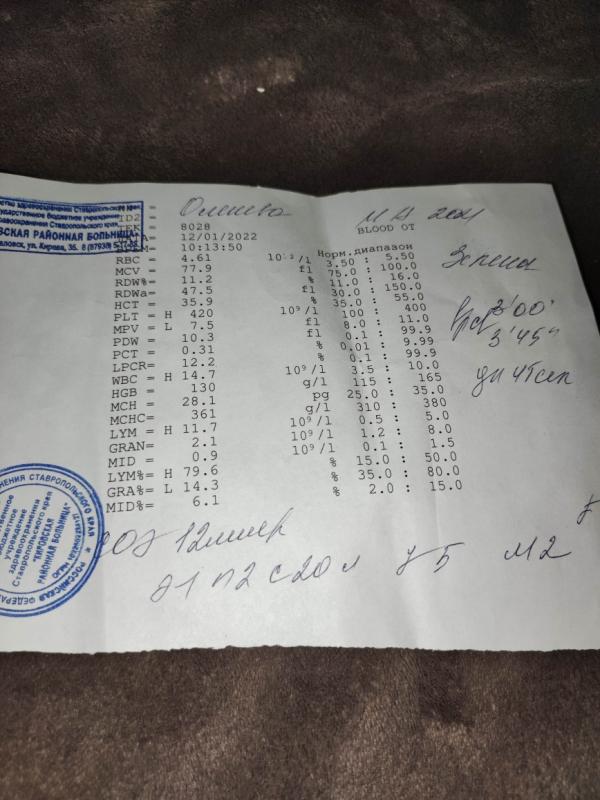 Министерство здравоохранения Ставропольского края
государственное бюджетное учреждение
здравоохранения Ставропольского края
"КИРОВСКАЯ РАЙОННАЯ БОЛЬНИЦА"
ID2 =
8028
12/01/2022
10:13:50
BLOOD OT
Норм.диапазон
RBC = 4.61 10¹²/l 3.50 : 5.50
MCV = 77.9 fl 75.0 : 100.0
RDW%= 11.2 % 11.0 : 16.0
RDWa= 47.5 fl 30.0 : 150.0
HCT = 35.9 % 35.0 : 55.0
PLT = H 420 10⁹/l 100 : 400
MPV = L 7.5 fl 8.0 : 11.0
PDW = 10.3 fl 0.1 : 99.9
PCT = 0.31 % 0.01 : 9.99
LPCR= 12.2 % 0.1 : 99.9
WBC = H 14.7 10⁹/l 3.5 : 10.0
HGB = 130 g/l 115 : 165
MCH = 28.1 pg 25.0 : 35.0
MCHC= 361 g/l 310 : 380
LYM = H 11.7 10⁹/l 0.5 : 5.0
GRAN= 2.1 10⁹/l 1.2 : 8.0
MID = 0.9 10⁹/l 0.1 : 1.5
LYM%= H 79.6 % 15.0 : 50.0
GRA%= L 14.3 % 35.0 : 80.0
MID%= 6.1 % 2.0 : 15.0
2021
3'45"
СОЭ 12мм/ч
Э1 П2 С20 Л М2
"КИРОВСКАЯ
РАЙОННАЯ БОЛЬНИЦА"